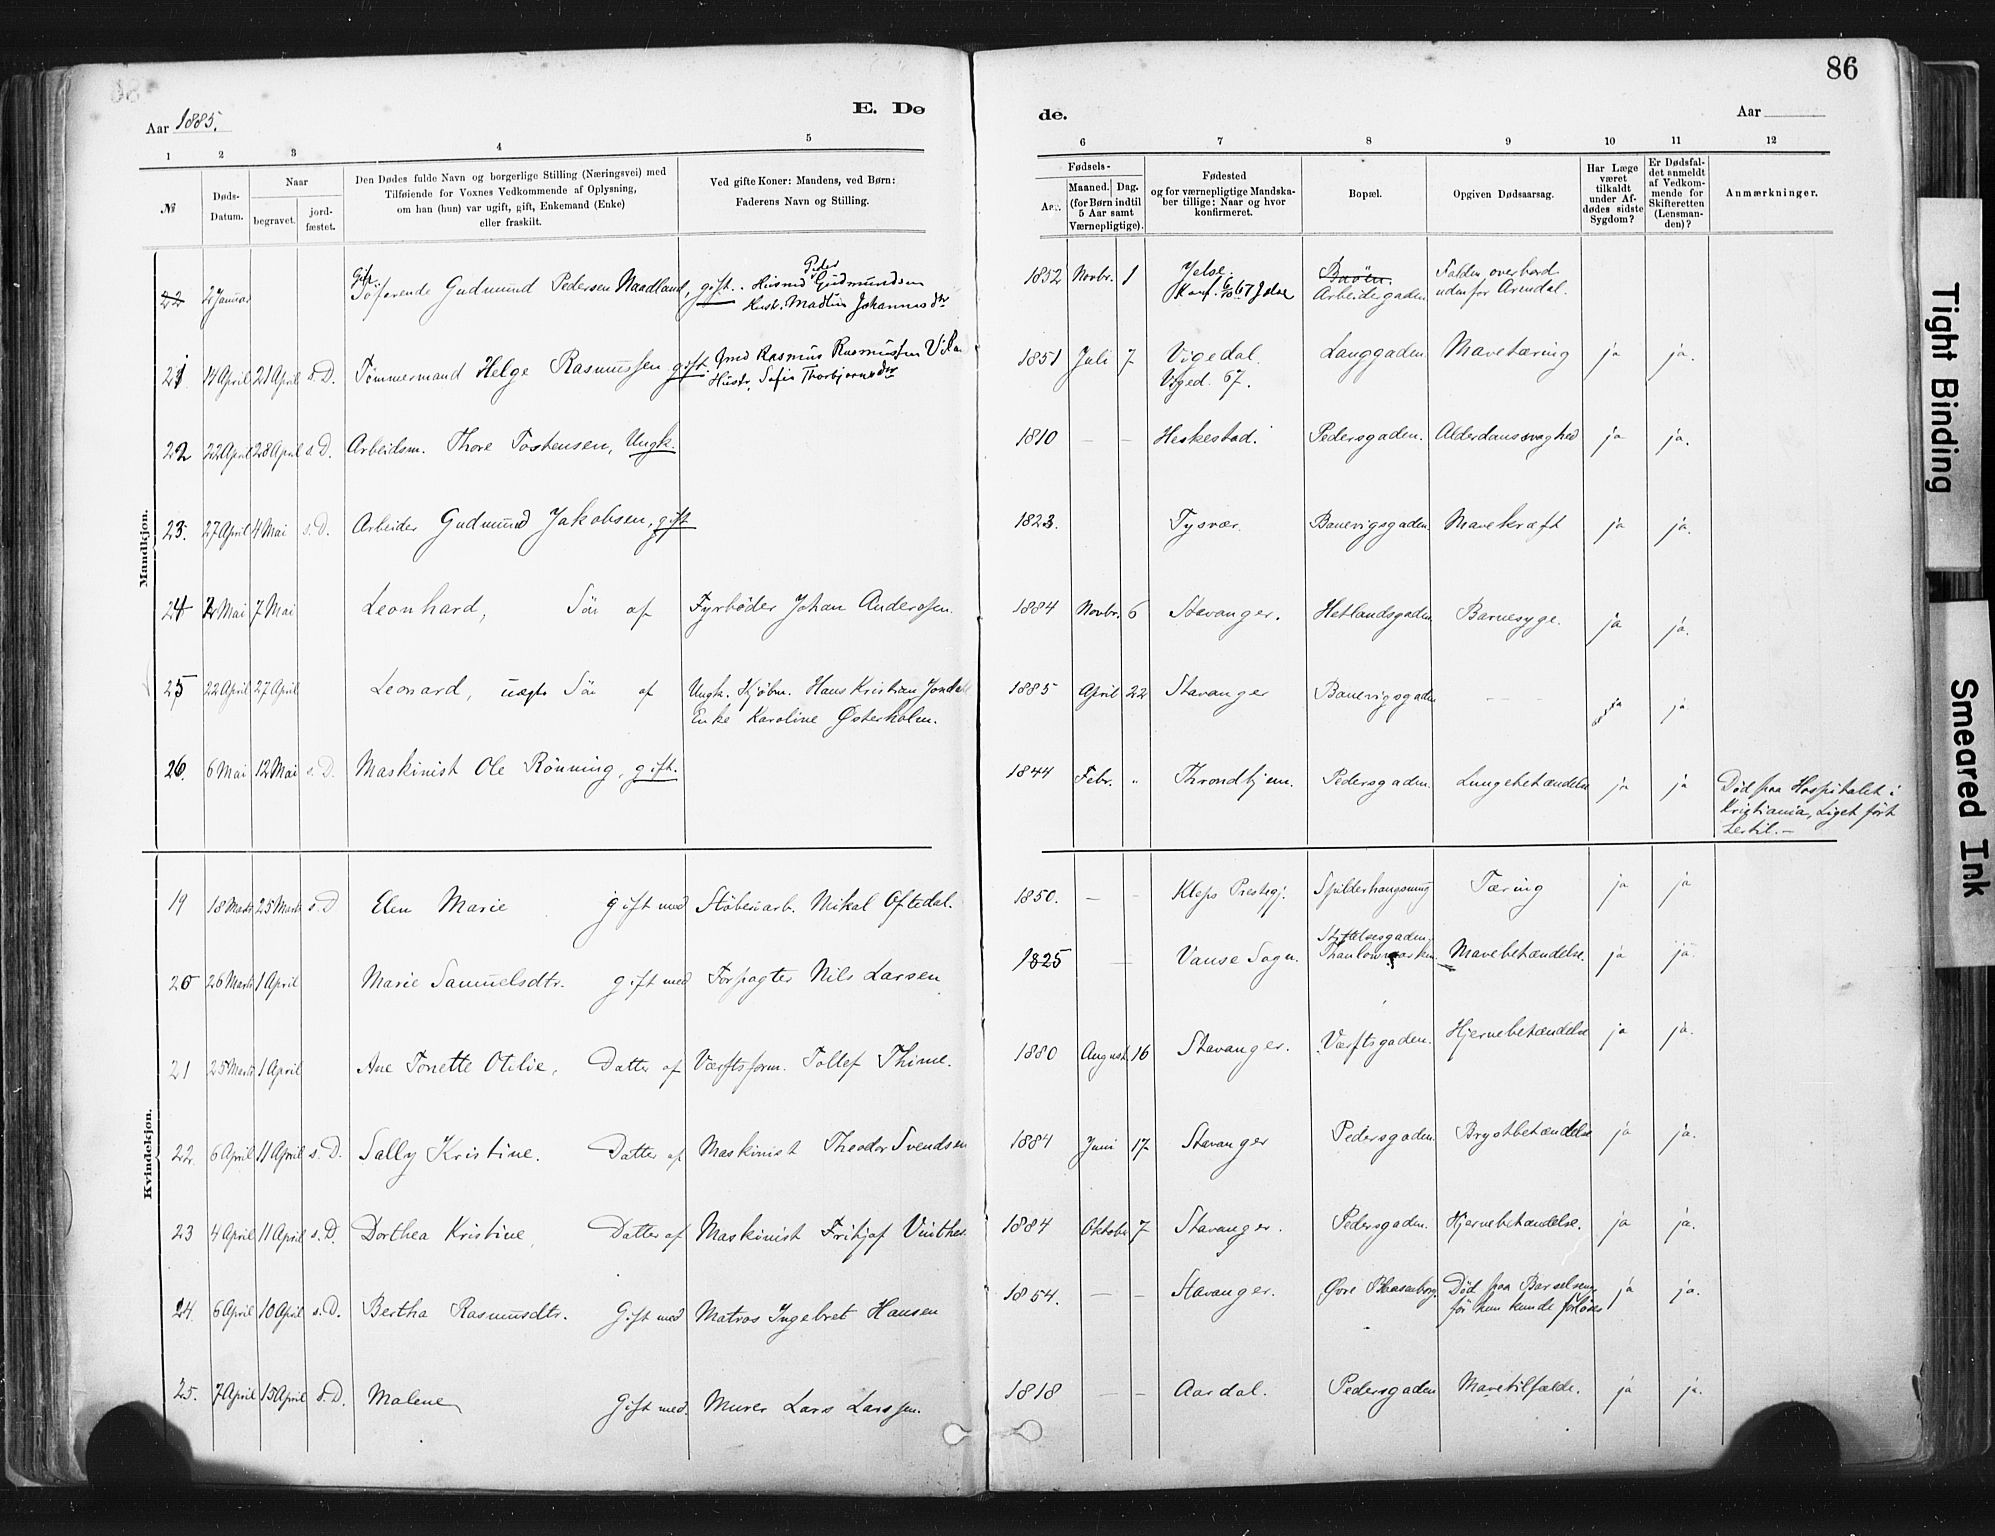 86
E. Dø de.
Aar 1885.
Aar
1 2 3 4 5 6 7 8 9 10 11 12
№
Døds-Datum.
Naar
begravet.
jord-fæstet.
Den Dødes fulde Navn og borgerlige Stilling (Næringsvei) med
Tilføiende for Voxnes Vedkommende af Oplysning,
om han (hun) var ugift, gift, Enkemand (Enke)
eller fraskilt.
Ved gifte Koner: Mandens, ved Børn:
Faderens Navn og Stilling.
Fødsels-
Aar.
Maaned. Dag.
(for Børn indtil
5 Aar samt
Værnepligtige).
Fødested
og for værnepligtige Mandska-
ber tillige: Naar og hvor
konfirmeret.
Bopæl.
Opgiven Dødsaarsag.
Har Læge
været
tilkaldt
under Af-
dødes sidste
Sygdom?
Er Dødsfal-
det anmeldt
af Vedkom-
mende for
Skifteretten
(Lensman-
den)?
Anmærkninger.
Mandkjøn.
22 2 Januar Søfarende Gudmund Pedersen Naadland, gift. Peder Gudmundsen 1852 Novbr. 1 Jelse. Arbeidergaden Falden overbord
Hustr. Madtin Johannesdtr Konf. 67 Jelse udenfor Arendal.
21 14 April 21 April s. D. Tømmermand Helge Rasmussen gift. Rasmus Rasmussen 1851 Juli 7 Vigedal. Langgaden Mavetæring ja ja.
Hustr. Sofie Thorbjørnsdtr Viged. 67.
22 22 April 28 April s. D. Arbeidsm. Thore Tostensen, Ungk. 1810 – – Heskestad. Pedersgaden. Alderdomssvaghed ja ja.
23. 27 April 4 Mai s. D. Arbeider Gudmund Jakobsen, gift 1823. Tysvær. Banevigsgaden Mavekræft ja ja.
24 2 Mai 7 Mai Leonhard, Søn af Fyrbøder Johan Anderssen. 1884 Novbr. 6 Stavanger. Hetlandsgaden Barnesyge. ja ja.
25 22 April 27 April Leonard, uægte Søn af Ungk. Kjøbm. Hans Kristian 1885 April 22 Stavanger Banevigsgaden – – ja
Enke Karoline Østerholm.
26 6 Mai 12 Mai s. D. Maskinist Ole Rönning, gift. 1844 Febr. „ Throndhjem. Pedersgaden. Lungebetændelse ja ja Død paa Hospitalet i
Kristiania, Liget ført
hertil.–
Kvindekjøn.
19 18 Marts 25 Marts s. D Elen Marie gift med Støberiarb. Mikal Oftedal. 1850. – – Kleps Prestgj. Tæring ja ja
20 26 Marts 1 April Marie Samuelsdtr. gift med Forpagter Nils Larsen 1825 – Vanse Sogn. Stiftelsesgaden. Mavebetændelse ja ja.
21 25 Marts 1 April Ane Tonette Otilie, Datter af Værftsform. Tollef Thime. 1880 August 16 Stavanger. Værftsgaden. Hjernebetændelse ja ja.
22. 6 April 11 April s. D. Sally Kristine. Datter af Maskinist Theodor Svendsen 1884 Juni 17 Stavanger Pedersgaden. Brystbetændelse ja ja.
23 4 April 11 April s. D. Dorthea Kristine, Datter af Maskinist Fritjof Vinther 1884 Oktober 7 Stavanger. Pedersgaden. Hjernebetændelse. ja ja.
24. 6 April 10 April s. D. Bertha Rasmusdtr. Gift med Matros Ingebret Hansen 1854. – – Stavanger. Øvre Blaasenborg. Død paa Barselseng ja ja.
før hun kunde forløses
25. 7 April 15 April s. D. Malene Gift med. Murer Lars Larssen. 1818 – – Aardal. Pedersgaden Mavetilfælde. ja ja.
Tight Binding
Smeared Ink